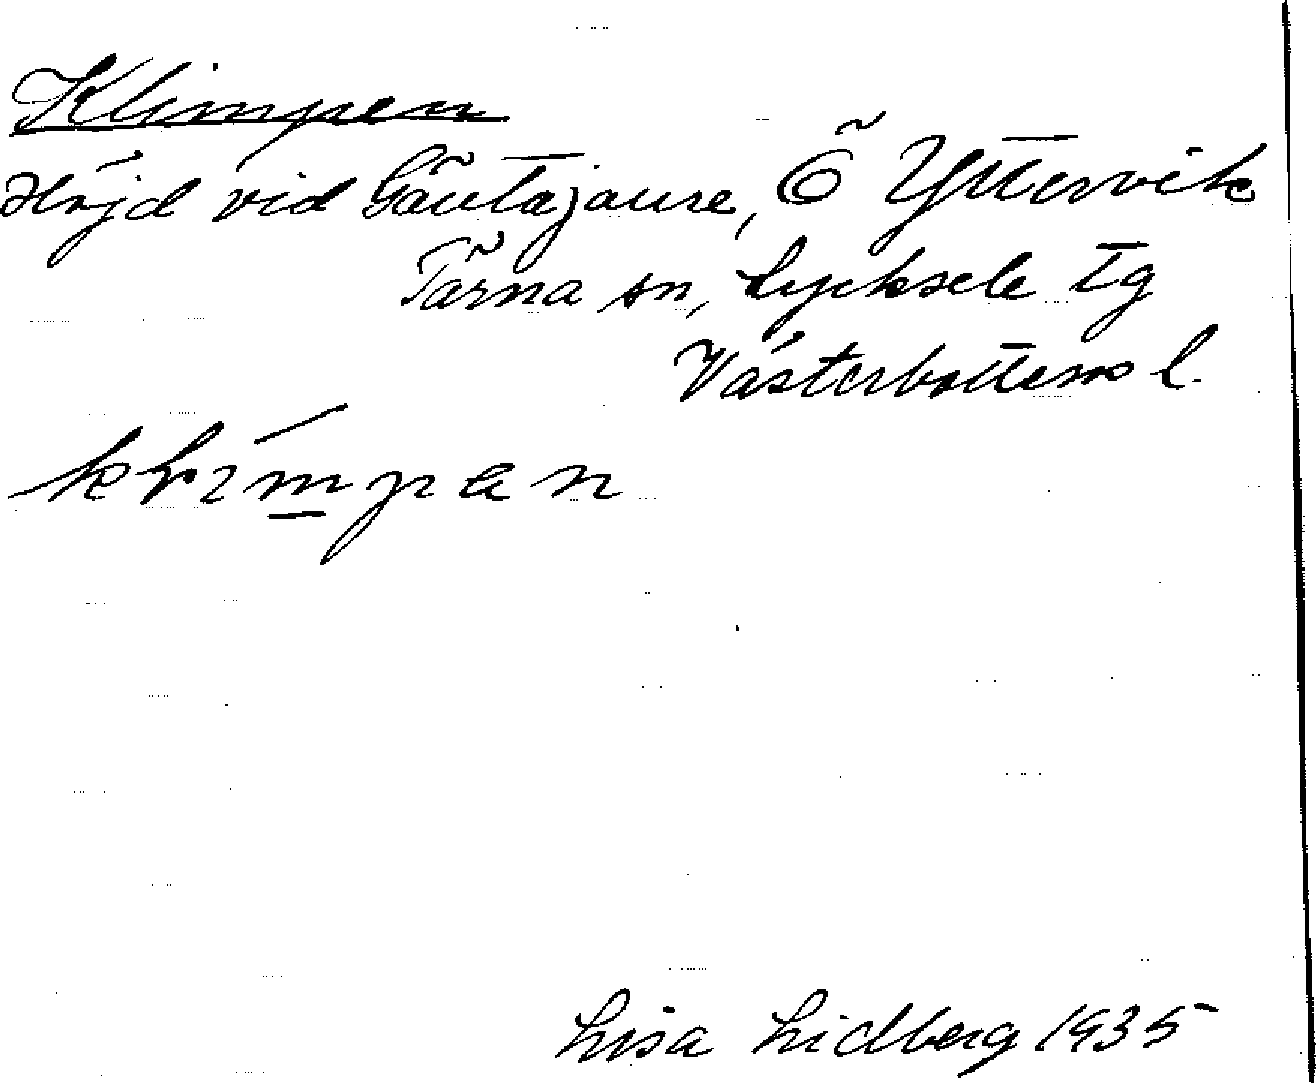 Klimpen
Höjd vid Gäutajaure, Ö Yttervik
Tärna sn, Lycksele tg
Västerbottens l.
Lisa Lidberg 1935